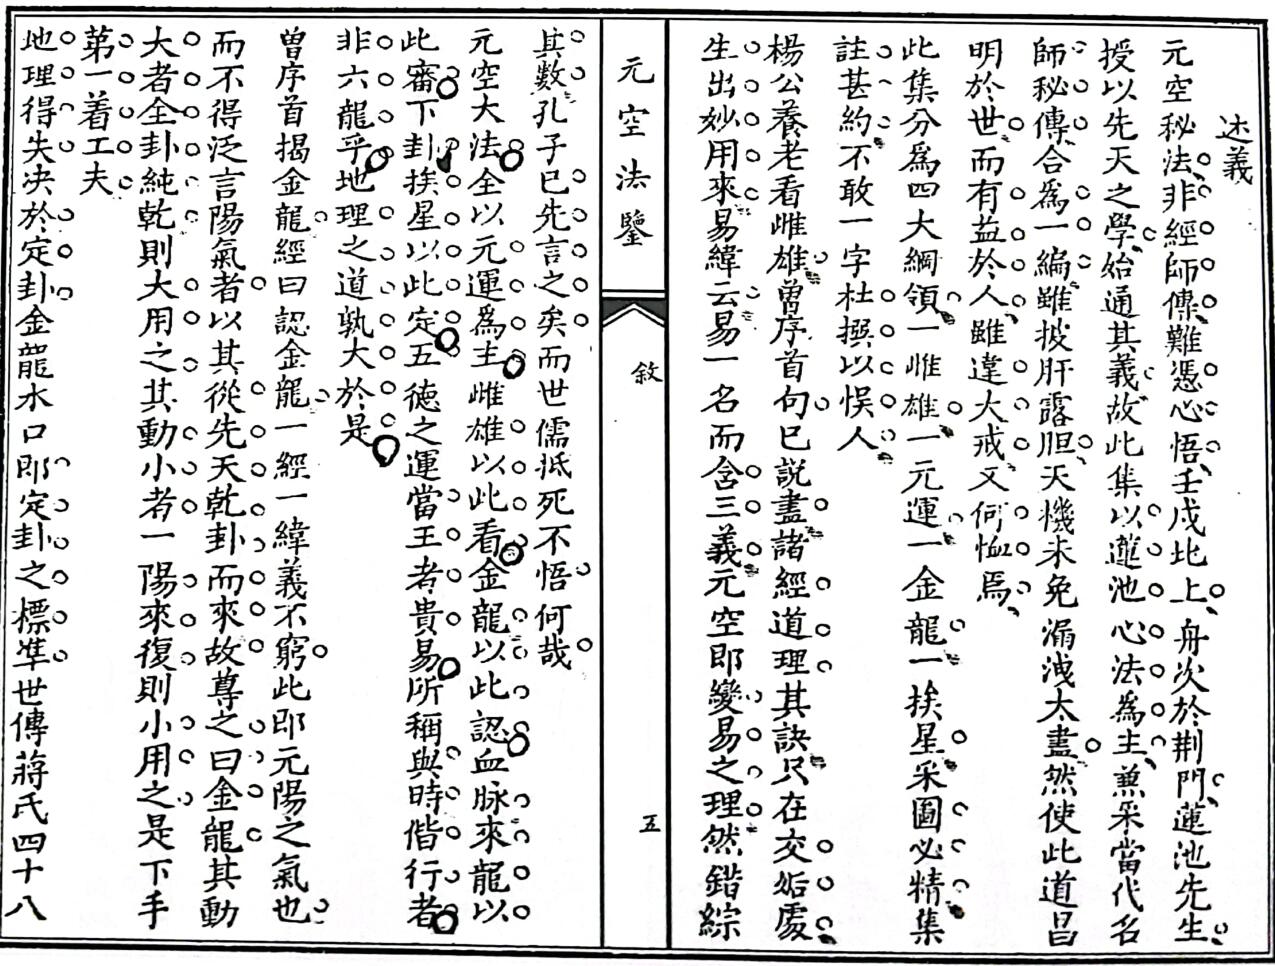 述義
元空秘法非經師傳難憑心悟壬戌北上舟次於荆門蓮池先生
授以先天之學始通其義故此集以蓮池心法為主兼采當代名
師秘傳合為一編雖披肝露胆天機未免漏洩太盡然使此道昌
明於世而有益於人雖違大戒又何恤焉
此集分爲四大綱領一雌雄一元運一金龍一挨星采圖必精集
註甚約不敢一字杜撰以悮人
楊公養老看雌雄曾序首句已説盡諸經道理其訣只在交姤處
生出妙用來易緯云易一名而含三義元空即變易之理然錯綜
元空法鑒
敘
五
其數孔子已先言之矣而世儒抵死不悟何哉
元空大法全以元運爲主雌雄以此看金龍以此認血脉來龍以
此審下卦挨星以此定五德之運當王者貴易所稱與時偕行者
非六龍乎地理之道孰大於是
曾序首揭金龍經曰認金龍一經一緯義不窮此即元陽之氣也
而不得泛言陽氣者以其從先天乾卦而來故尊之曰金龍其動
大者全卦純乾則大用之其動小者一陽來復則小用之是下手
第一着工夫
地理得失决於定卦金龍水口即定卦之標準世傳蔣氏四十八